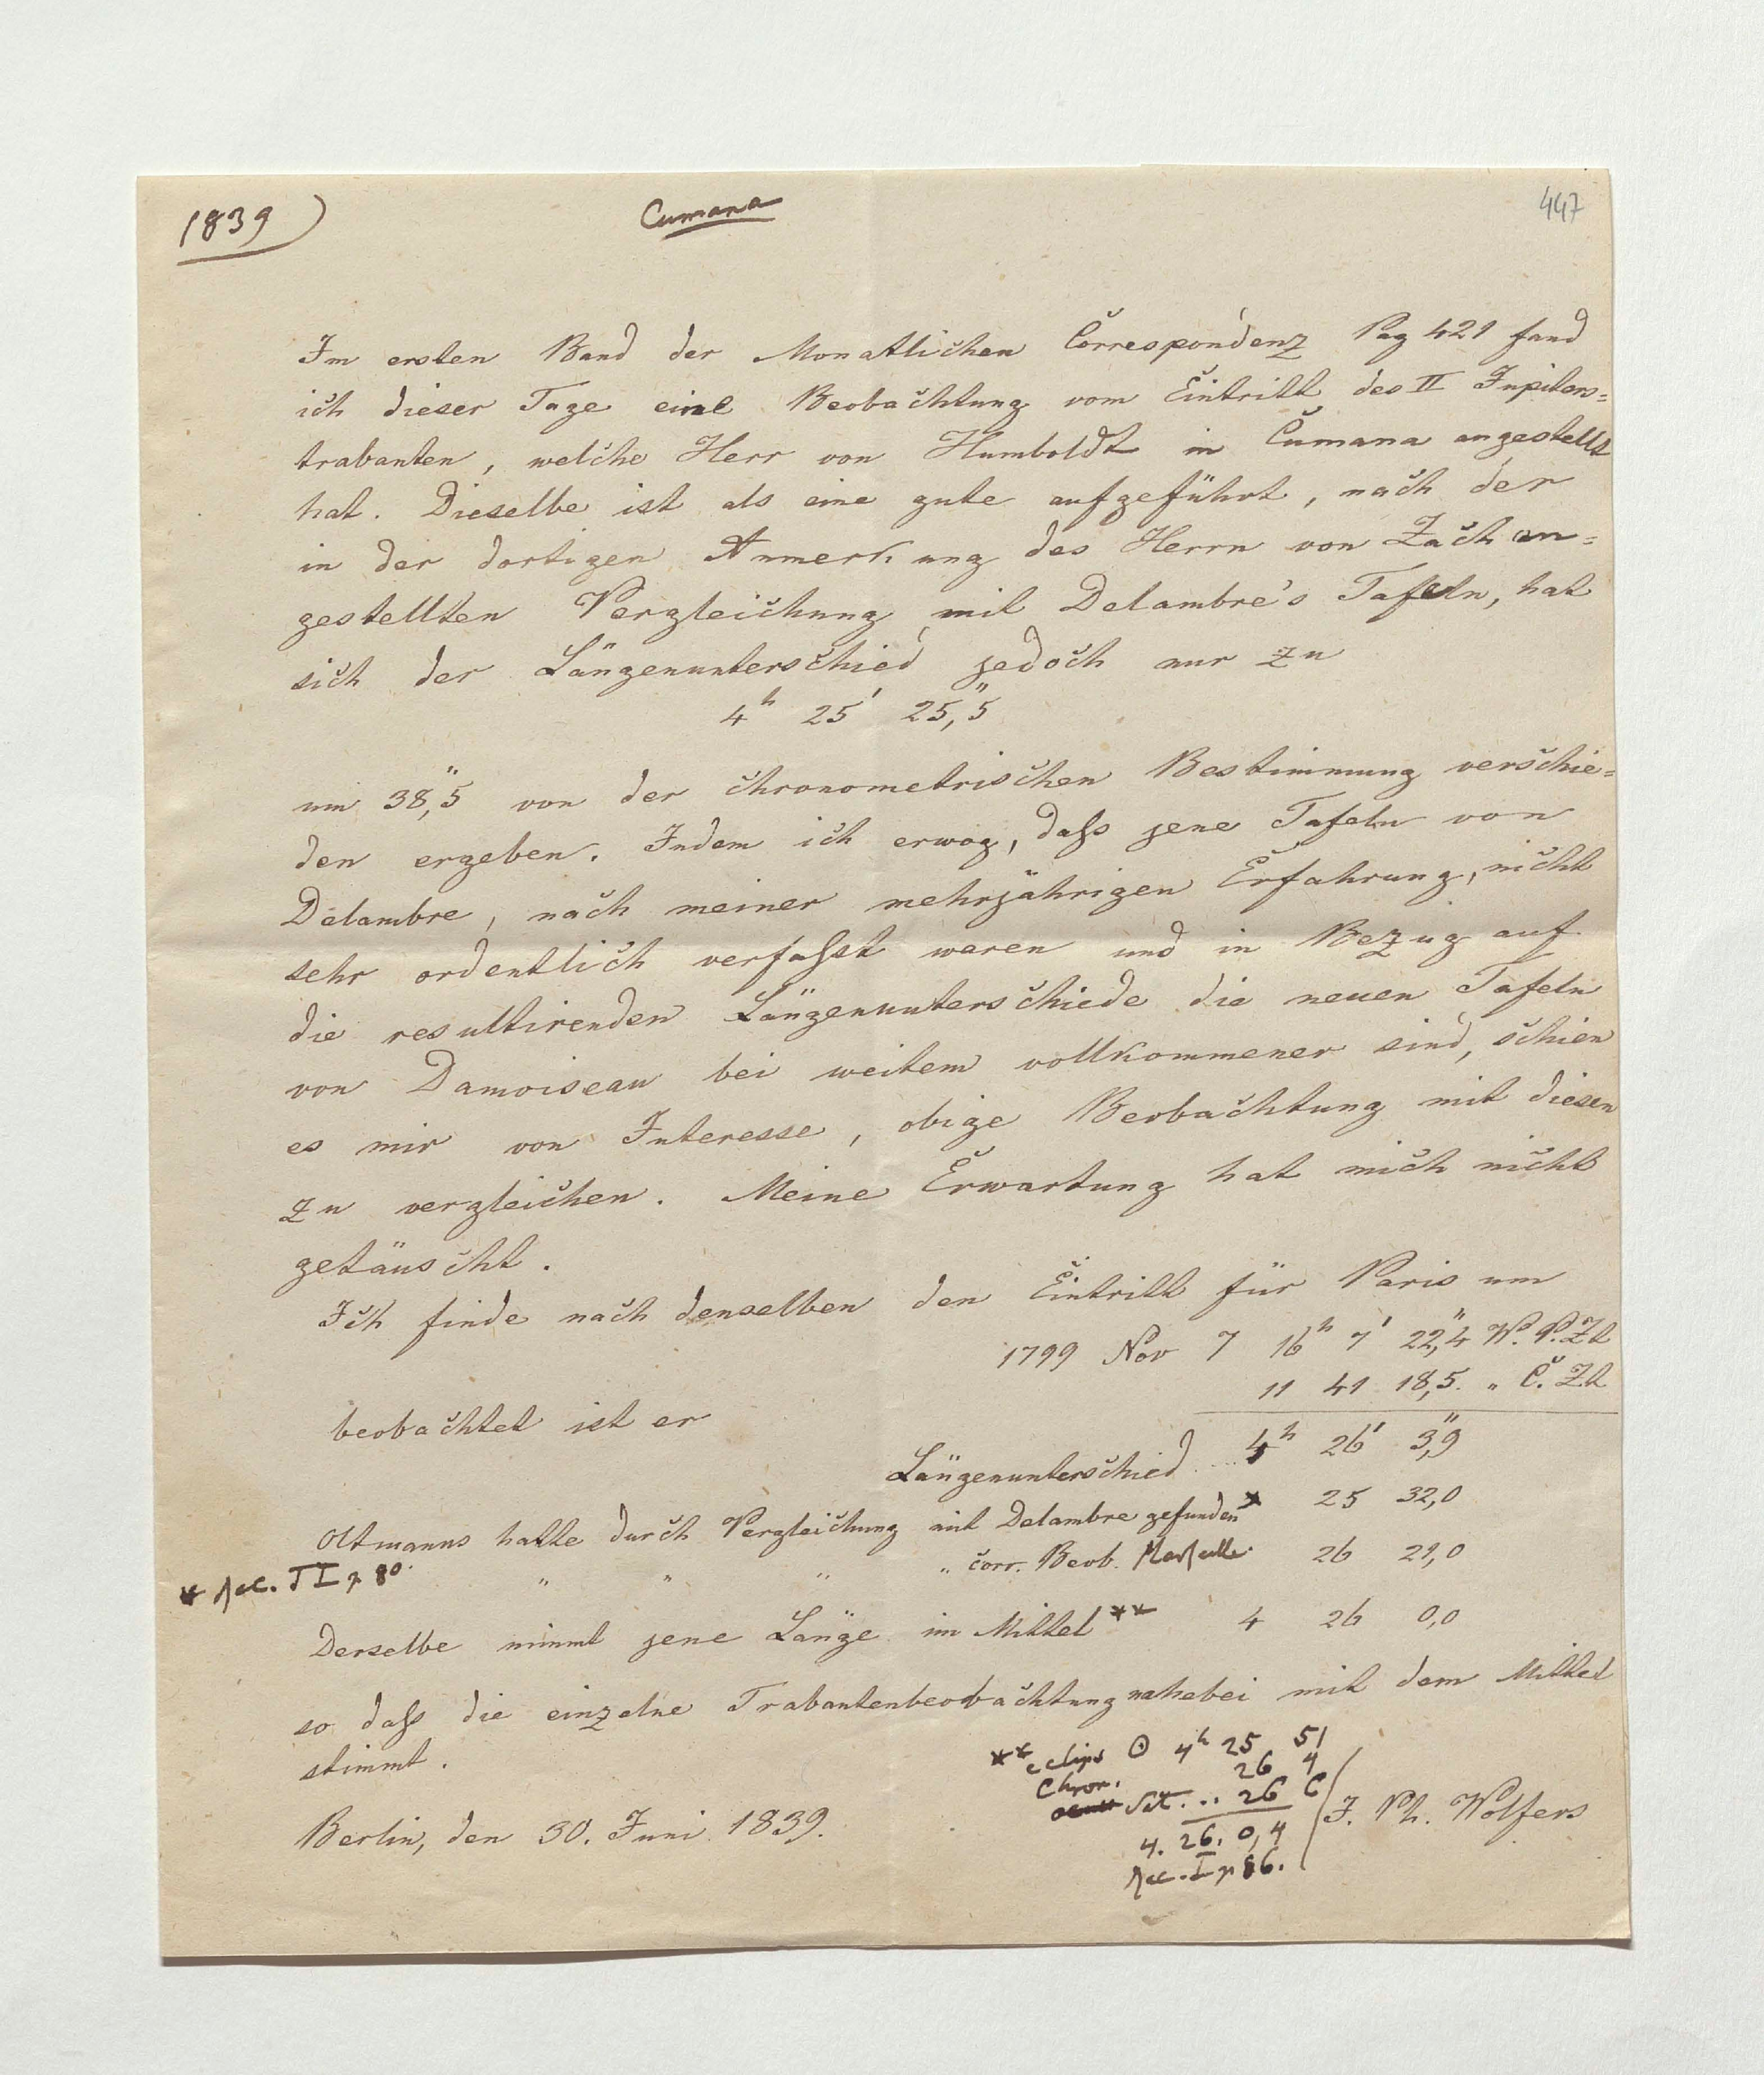 1839)
Cumana
447
Im ersten Band der Monatlichen Correspondenz Pag 421 fand
ich dieser Tage eine Beobachtung vom Eintritt des II Jupiters=
trabanten, welche Herr von Humboldt in Cumana angestellt
hat. Dieselbe ist als eine gute aufgeführt, nach der
in der dortigen Anmerkung des Herrn von Zach an=
gestellten Vergleichung mit Delambre's Tafeln, hat
sich der Längenunterschied jedoch nur zu
4h 25' 25",5
um 38",5 von der chronometrischen Bestimmung verschie=
den ergeben. Indem ich erwog, daſs jene Tafeln von
Delambre, nach meiner mehrjährigen Erfahrung, nicht
sehr ordentlich verfaſst waren und in Bezug auf
die resultirenden Längenunterschiede die neuen Tafeln
von Damoiseau bei weitem vollkommener sind, schien
es mir von Interesse, obige Beobachtung mit diesen
zu vergleichen. Meine Erwartung hat mich nicht
getäuscht.
Ich finde nach denselben den Eintritt für Paris um
1799 Nov 7 16h 7' 22",4 W. P. Zt
beobachtet ist er 11 41 18,5. " C. Zt
Längenunterschied ... 4h 26' 3",9
Oltmanns hatte durch Vergleichung mit Delambre gefunden* 25 32,0
* Rec. T I p 80.
" " " " corr. Beob. Marseille. 26 21,0
Derselbe nimmt jene Länge im Mittel** 4 26 0,0
so daſs die einzelne Trabantenbeobachtung nahebei mit dem Mittel
stimmt.
** eclips ⊙ 4h 25 51
Chron. 26 4
Sat. ... 26 6
4. 26. 0,4
Rec. I p 86.
Berlin, den 30. Juni 1839.
J. Ph. Wolfers